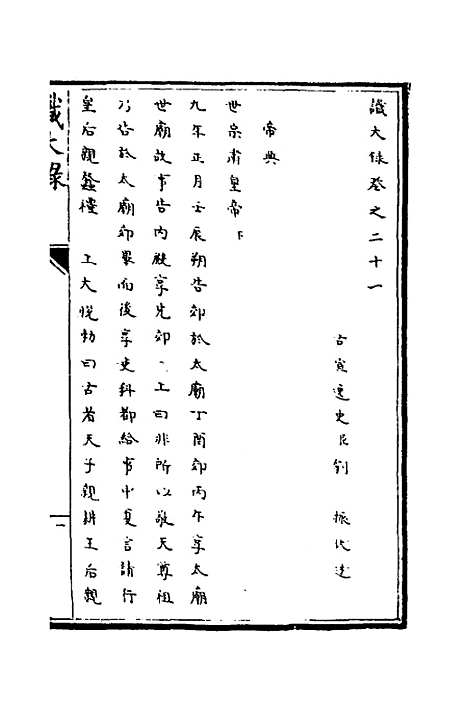 識大錄卷之二十一
古宣逸史臣劉　振代述
帝典
世宗肅皇帝下
九年正月壬辰朔告郊於太廟丁酉郊丙午享太廟
世廟故事告內殿享先郊　上曰非所以敬天尊祖
乃告於太廟郊畢而後享吏科都給事中夏言請行
皇后親蠶禮　上大悅勅曰古者天子親耕王后親
識大錄
一